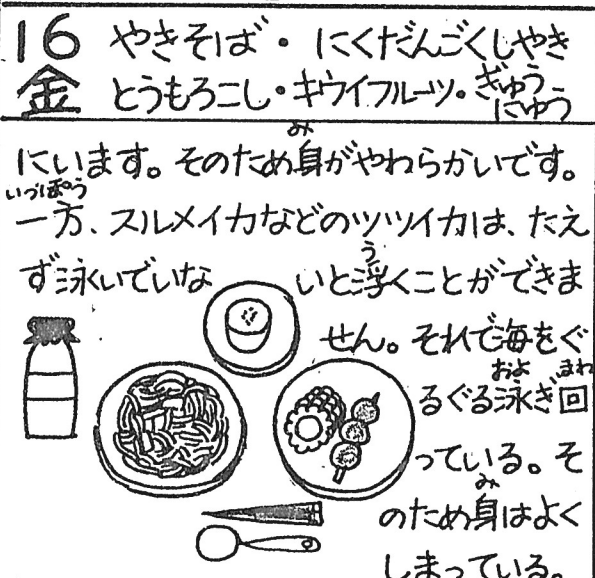 16 やきそば・にくだんごくしやき
金 とうもろこし・キウイフルーツ・ぎゅうにゅう
にいます。そのため身がやわらかいです。
一方、スルメイカなどのツツイカは、たえ
ず泳いでいな いと浮くことができま
せん。それで海をぐ
るぐる泳ぎ回
っている。そ
のため身はよく
しまっている。